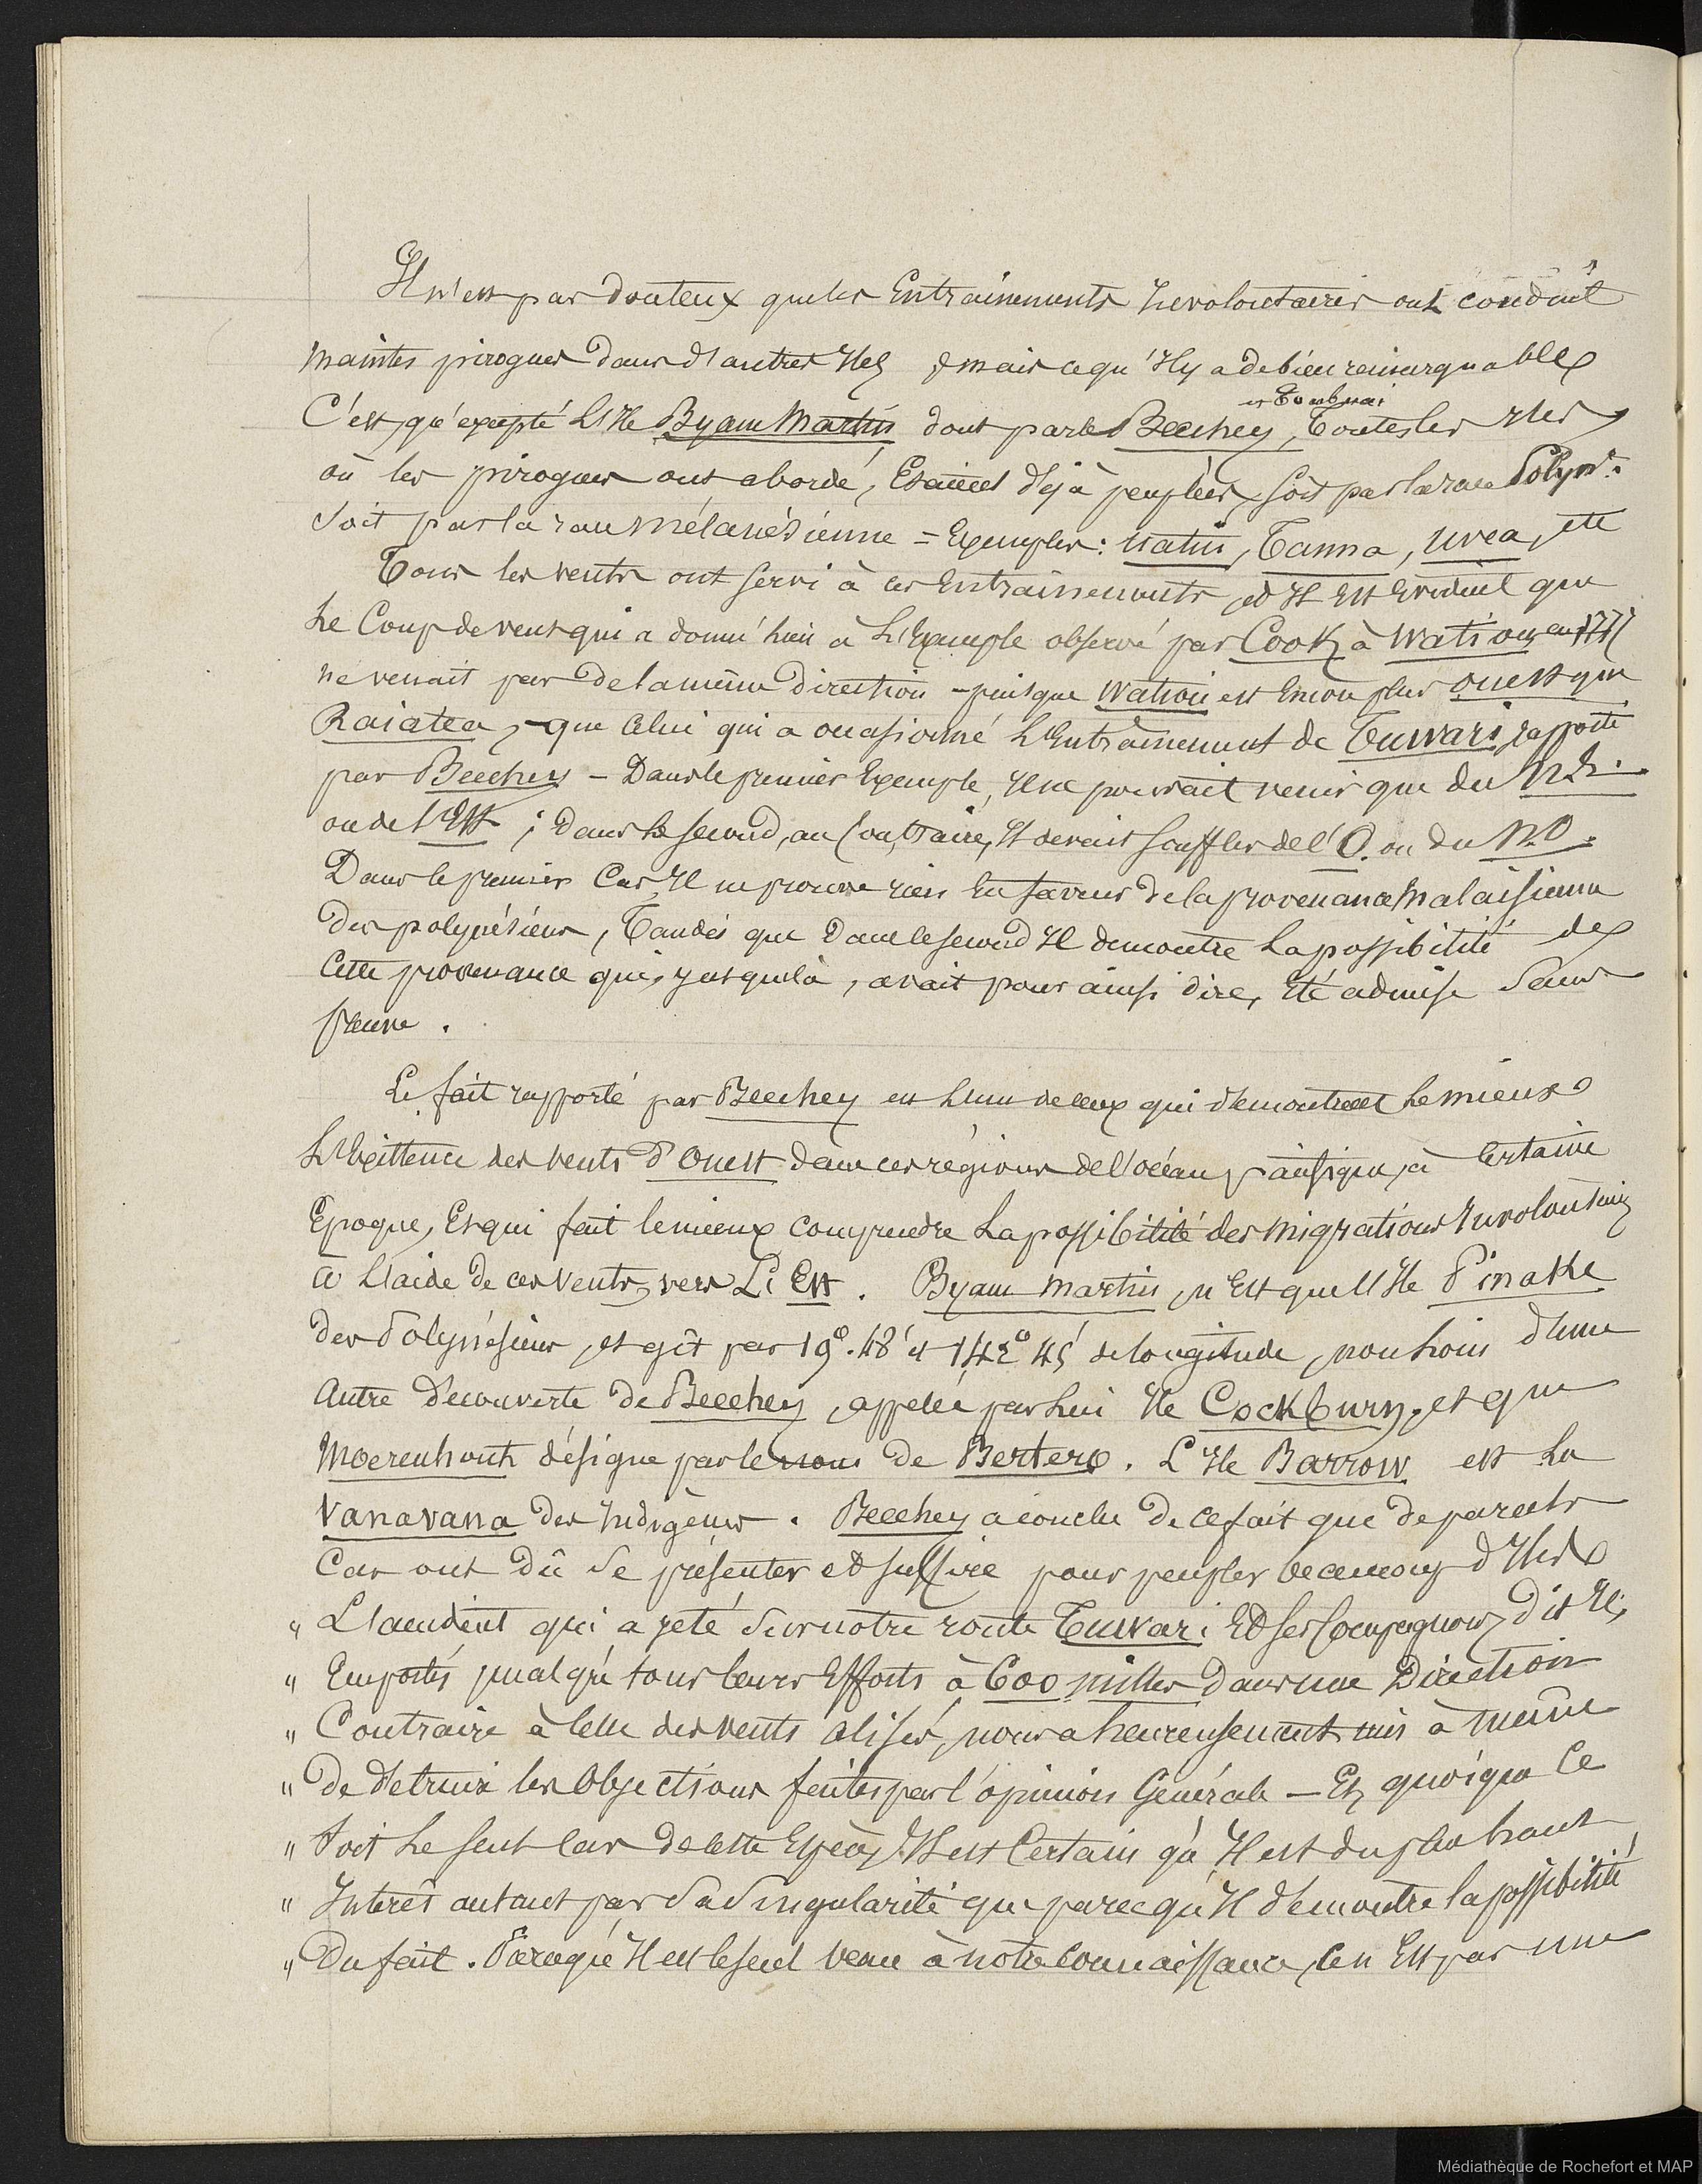 Il n'est pas douteux que les Entrainements Involontaires ont conduit
maintes pirogues dans d'autres Iles ; mais ce qu'Il y a de bien remarquable
C'est, qu'excepté L'Ile Byam Martin dont parle Beechey, et Toubuai Toutes les Iles
où les pirogues ont abordé, Etaient déjà peuplées, soit par la race Polyn.e
soit par la race Mélanésienne = Exemples : Watiu, Tanna, Uvea, etc
Tous les vents ont servi à ces Entrainements, et Il Est Evident que
Le Coup de vent qui a donné lieu à L'Exemple observé par Cook à Watiou, en 1777
ne venait pas de la même direction - puisque Watiou est Encore plus ouest que
Raiatea, - que Celui qui a occasionné L'Entrainement de Tuwari, rapporté
par Beechey - Dans le premier Exemple, Il ne pouvait venir que du N.E.
ou de l'Est ; dans Le second, au Contraire, Il devait souffler de l'O. ou du N.O.
Dans le premier Cas, Il ne prouve rien En faveur de la provenance Malaisienne
des polynésiens, Tandis que Dans le second Il démontre La possibilité de
Cette provenance qui, jusque là, avait pour ainsi dire, Eté admise sans
preuve .
Le fait rapporté par Beechey est L'un de ceux qui démontrent Le mieux
L'Existence des vents d'Ouest dans ces régions de l'océan pacifique, à Certaine
Epoque, Et qui fait le mieux comprendre La possibilité des migrations Involontaires
à L'aide de ces vents, vers L'Est . Byam Martin, n'Est que l'Ile Pinake
des Polynésiens, et gît par 19°.48' et 142° 45' de longitude, non loin d'une
autre découverte de Beechey, appelée par Lui Ile Cockburn, et que
Moerenhout désigne par le nom de Bertero . L'Ile Barrow est La
Vanavana des Indigènes . Beechey a conclu De ce fait que de pareils
Cas ont Dû se présenter et suffire pour peupler beaucoup d'Iles
" L'accident qui a jeté sur notre route Tuwari Et ses Compagnons, dit Il,
" Emportés malgré tous leurs Efforts à 600 milles dans une Direction
" Contraire à celle des vents alisés, nous a heureusement mis à même
" De détruire les Objections faites par l'opinion Générale — Et, quoique Ce
" soit Le seul Cas de cette Espèce, Il est Certain qu'Il est du plus haut
" Interêt autant par sa singularité que parcequ'Il démontre la possibilité
" Du fait . Parcequ'Il est le seul venu à notre connaissance, Ce n'Est pas une
Médiathèque de Rochefort et MAP